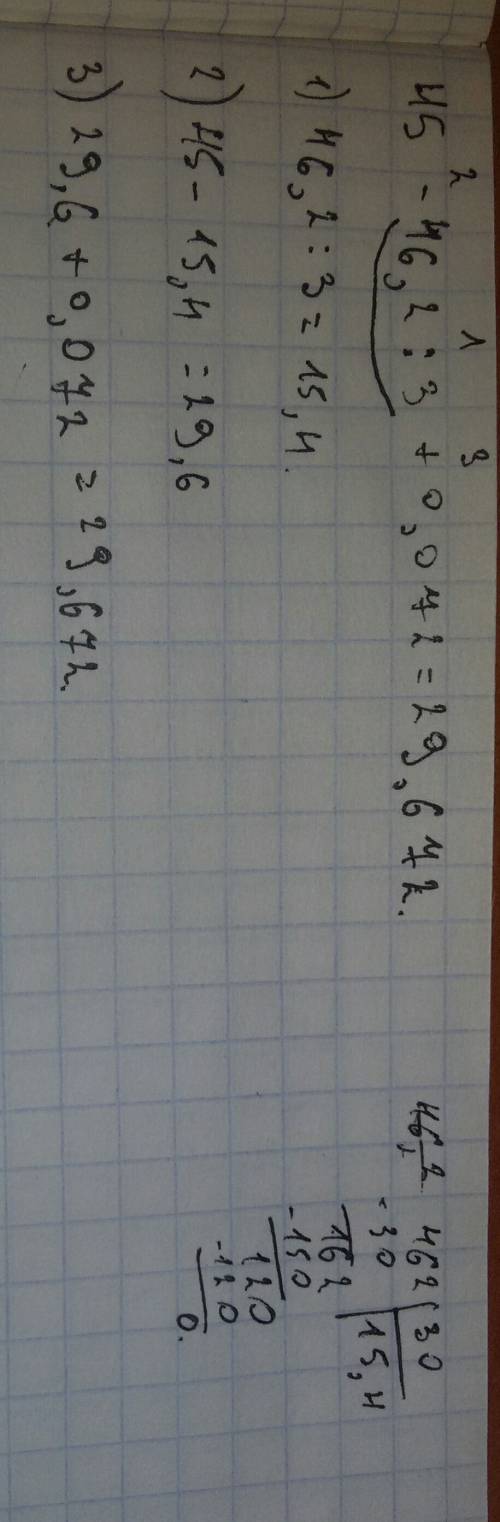 2 1 3
45 - 46,2 : 3 + 0,072 = 29,672.
1) 46,2 : 3 = 15,4.
2) 45 - 15,4 = 29,6
3) 29,6 + 0,072 = 29,672.
46,2 462 30
- 30 15,4
162
- 150
120
- 120
0.